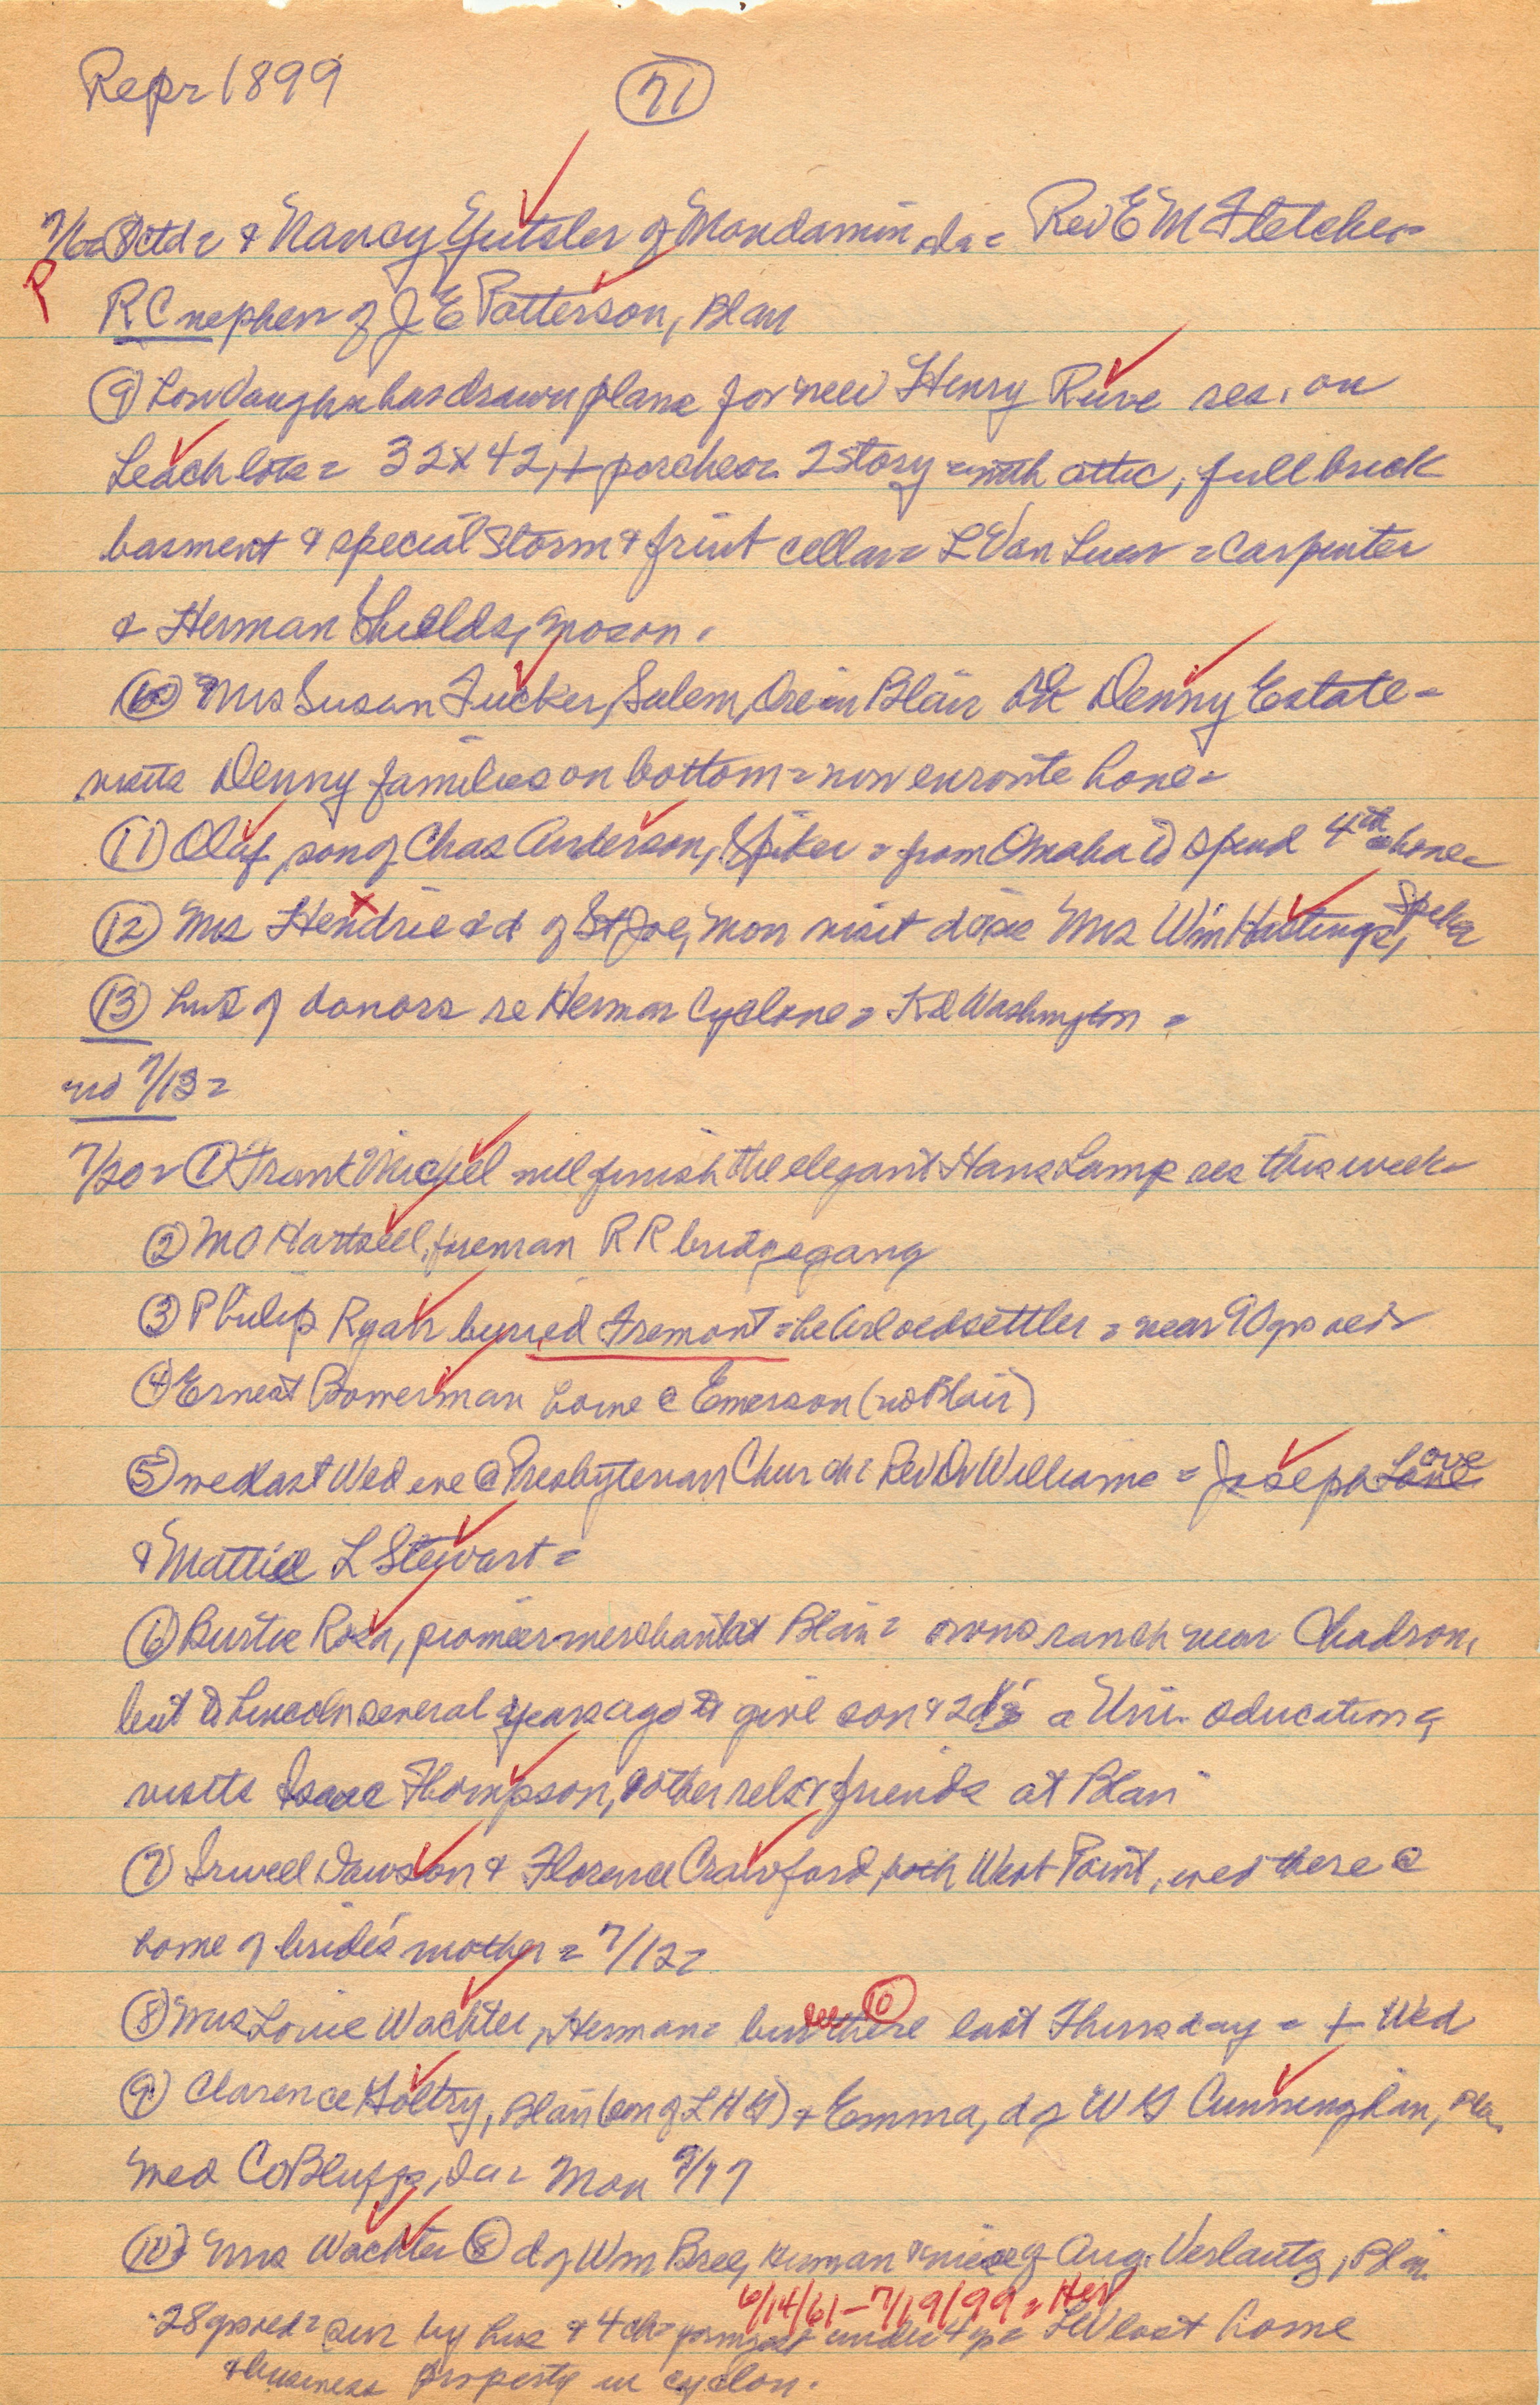 Repr 1899 (71)
7/6 = 8 ctd = & Nancy Gutsler of Mondamin, Ia = Rev E M Fletcher =
P
RC nephew of J E Patterson, Blair
(9) Lon Vaughn has drawn plans for new Henry Ruve res. on
Leach lots = 32 x 42, + porches = 2 story = with attic, full brick
basment & special storm & fruit cellar = L Van Luer = carpenter
& Herman Shields, mason.
(10) Mrs Susan Tucker, Salem, Ore in Blair re Denny Estate =
visits Denny families on bottom = now enroute home =
(11) Olaf, son of Chas Anderson, Spiker = from Omaha to spend 4th @ home =
(12) Mrs Hendrie & d of St Joe, Mon visit d or sis Mrs Wm Hastings, Spiker
(13) List of donors re Herman Cyclone = Kd Washington =
no 7/13 =
7/20 = (1) Frank Michel will finish the elegant Hans Lamp res this week =
(2) M O Hartzell, foreman R R bridge gang
(3) Philip Ryan buried Fremont = he Arl oldsettler = near 90 yrs old =
(4) Ernest Bowerman home @ Emerson (no Blair)
(5) wed last Wed eve @ Presbyterian Church = Rev Dr Williams = Joseph Lane Love
& Mattie L Stewart =
(6) Burtie Rosa, pioneer merchant at Blair = owns ranch near Chadron,
but to Lincoln several years ago to give son & 2 d's a Uni. education &
visits Isaac Thompson, & other rels & friends at Blair
(7) Irwell Dawson & Florence Crawford, both West Point, wed there @
home of bride's mother = 7/12 =
(8) Mrs Louie Wachter, Herman = bur there last Thursday = + Wed
see (10)
(9) Clarence Holtry, Blair (son of L H H) & Emma, d of W G Cunningham, Bla.
wed Co Bluffs, Ia = Mon 7/17
(10) Mrs Wachter (8) d of Wm Bree, Herman & niece of Aug. Verlautz, Blair
6/14/61 - 7/19/99 = Her
28 yrs old = sur by hus & 4 ch = youngest under 4 yrs = LW lost home
& business property in cyclon.